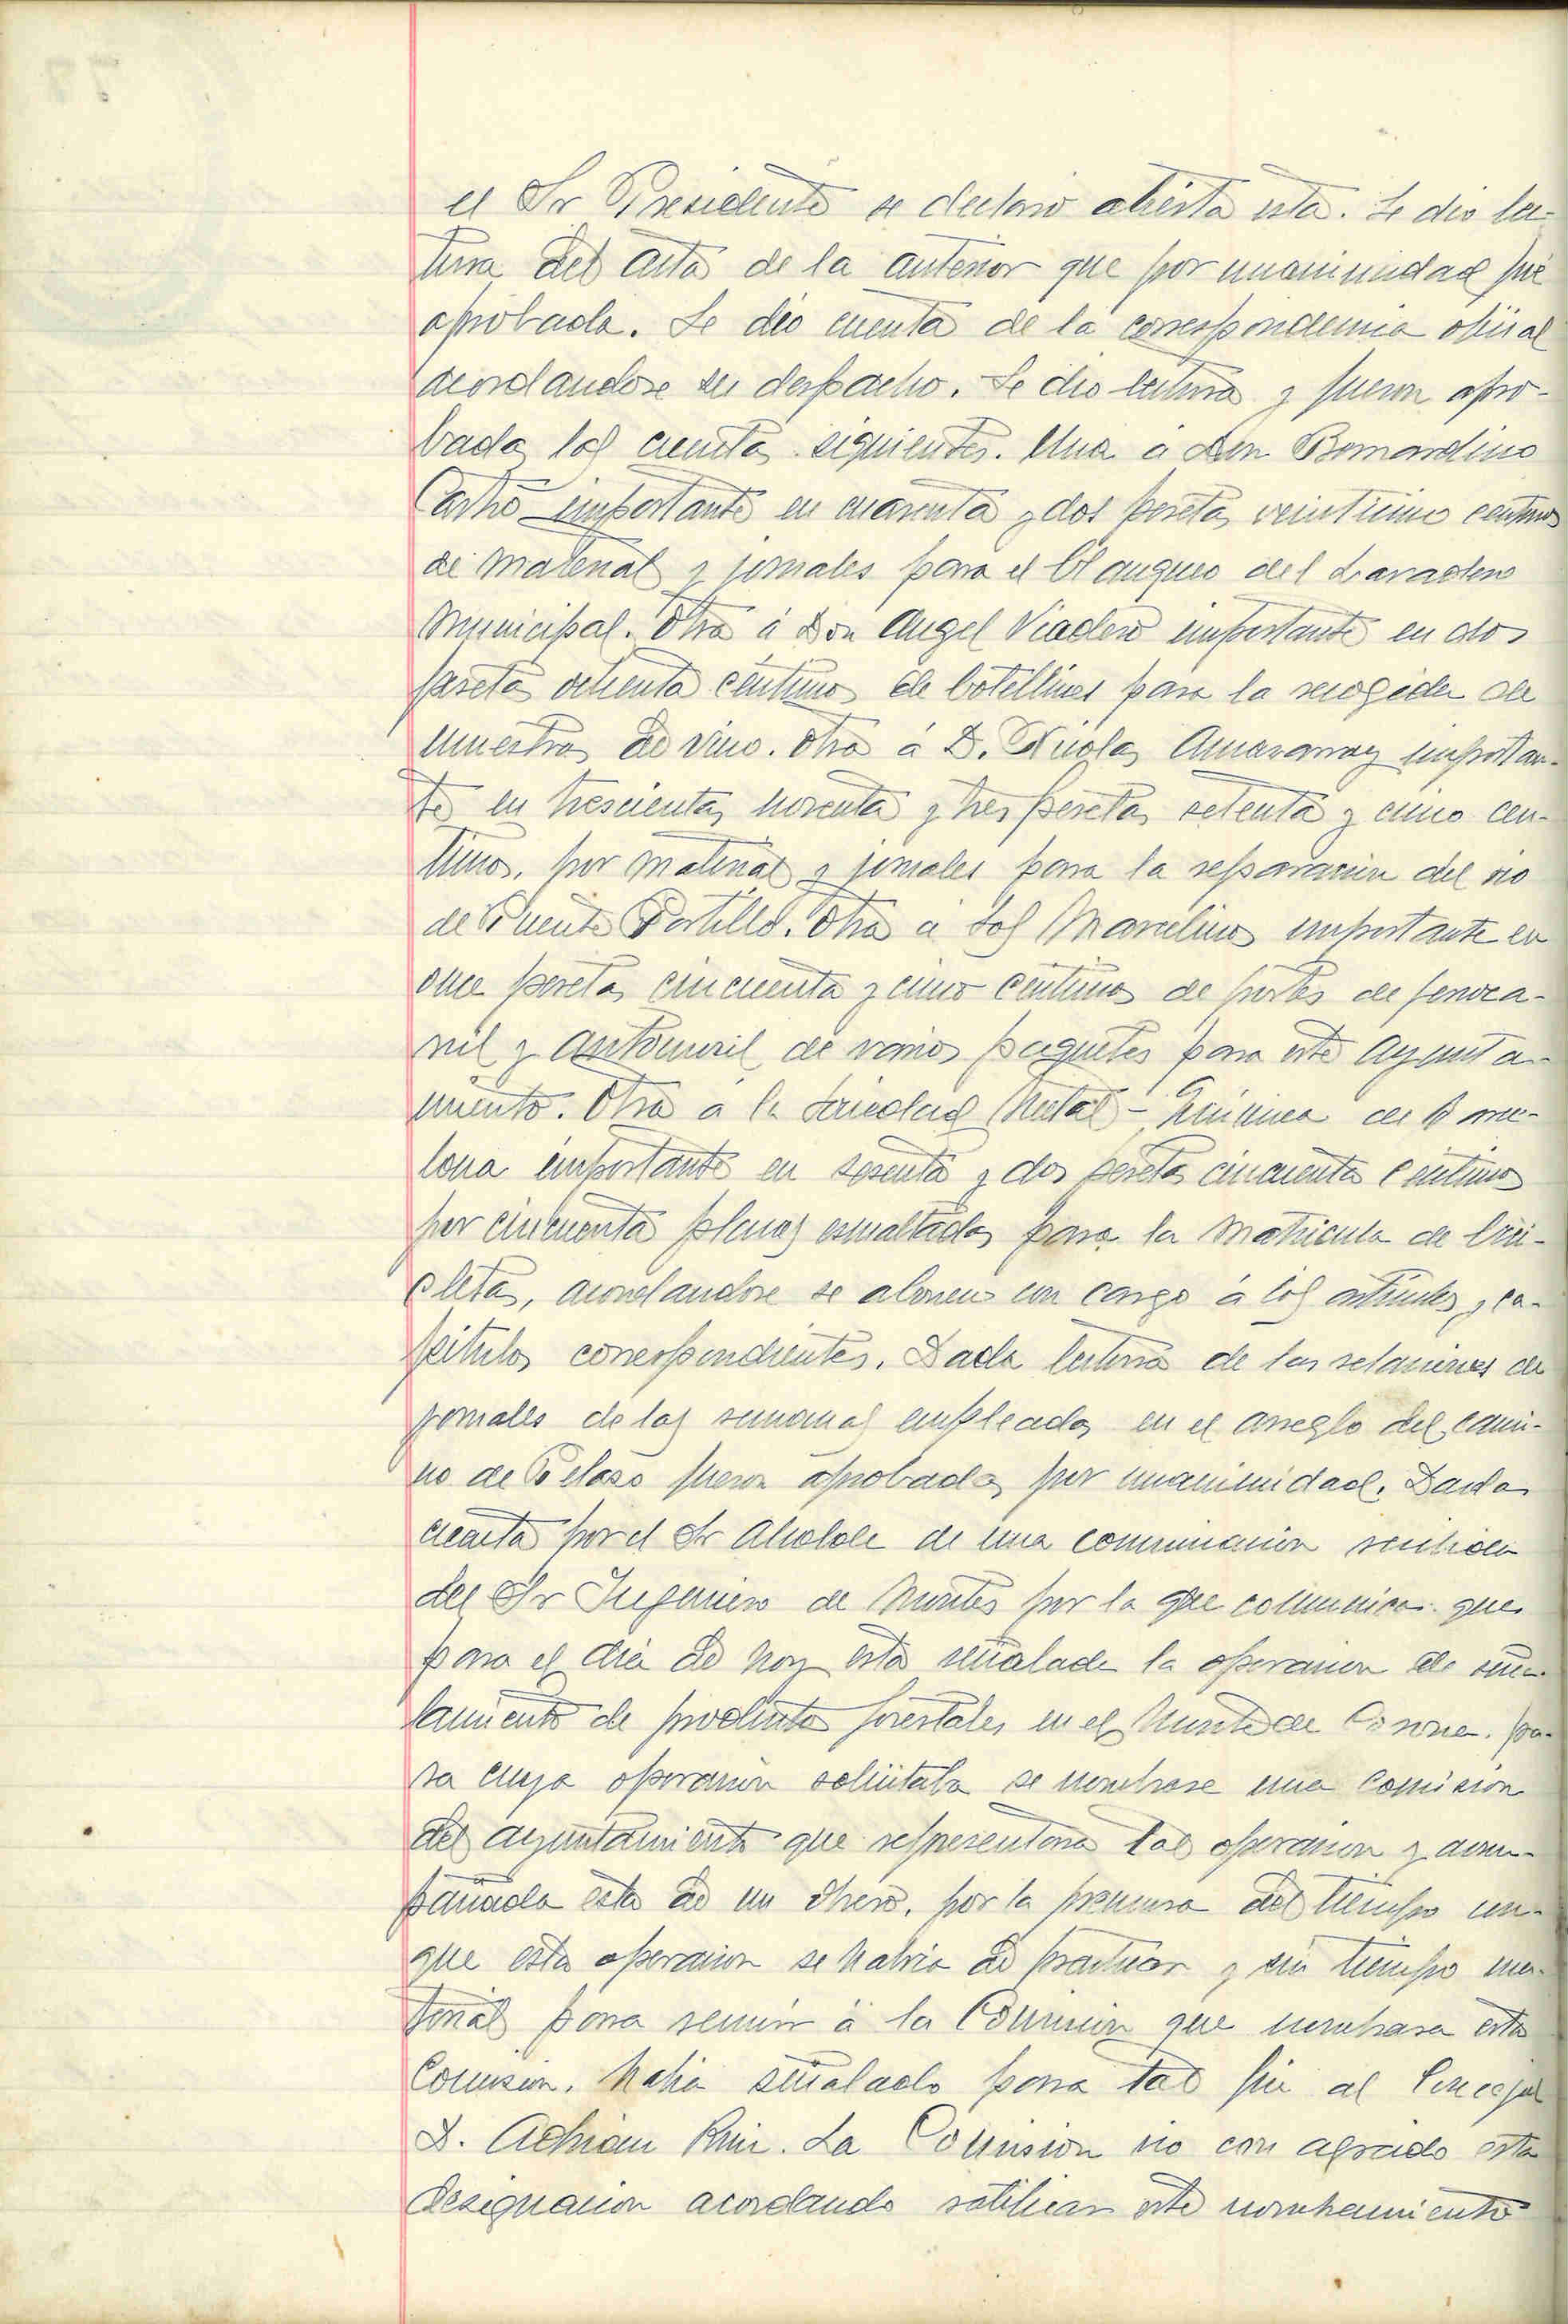 el Sr Presidente se declaró abierta esta. Se dio lec-
tura del acta de la anterior que por unanimidad fué
aprobada. Se dió cuenta de la correspondencia oficial
acordandose su despacho. Se dio lectura y fueron apro-
badas las cuentas siguientes. Una á Don Bernardino
Castro importante en cuarenta y dos pesetas veinticinco centimos
de material y jornales para el blanqueo del Lavadero
Municipal. Otra á Don Angel Viadero importante en dos
pesetas ochenta céntimos de botellines para la recogida de
muestras de vino. Otra á D. Nicolas importan-
te en trescientas noventa y tres pesetas setenta y cinco cen-
timos, por material y jornales para la reparación del rio
de Puente Portillo. Otra á Los Marcelinos importante en
once pesetas cincuenta y cinco céntimos de portes de ferroca-
rril y automovil de varios paquetes para este Ayunta-
miento. Otra á la Sociedad Metal-Quimica de Barce-
lona importante en sesenta y dos pesetas cincuenta céntimos
por cincuenta placas esmaltadas para la matricula de bici-
cletas, acordandose se abonen con cargo á los articulos y ca-
pitulos correspondientes. Dada lectura de las relaciones de
jornales de las semanas empleadas en el arreglo del cami-
no de fueron aprobadas por unanimidad. Dada
cuenta por el Sr Alcalde de una comunicación recibida
del Sr Ingeniero de Montes por la que comunica que
para el dia de hoy esta señalada la operacion de seña-
lamiento de productos forestales en el Monte de pa-
ra cuya operación solicitaba se nombrase una comisión
del ayuntamiento que representara tal operacion y acom-
pañada esta de un obrero, por la premura del tiempo con
que esta operacion se habia de practicar y sin tiempo ma-
terial para reunir á la Comisión que nombrara esta
Comision. Habia señalado para tal fin al Concejal
D. Adrian Ruiz. La Comision vio con agrado esta
designacion acordando ratificar este nombramiento